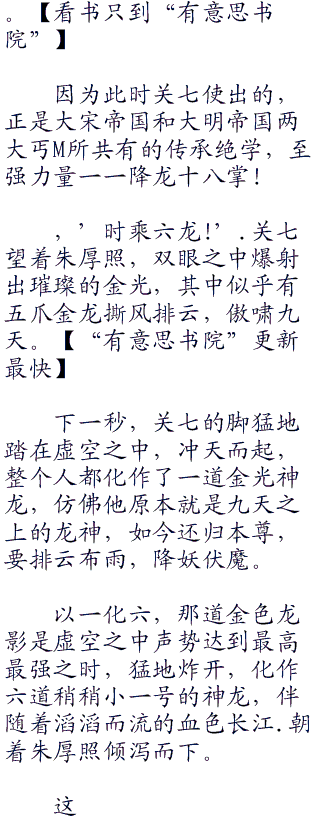 。【看书只到“有意思书
院”】
因为此时关七使出的，
正是大宋帝国和大明帝国两
大丐M所共有的传承绝学，至
强力量一一降龙十八掌！
，’时乘六龙!’.关七
望着朱厚照，双眼之中爆射
出璀璨的金光，其中似乎有
五爪金龙撕风排云，傲啸九
天。【“有意思书院”更新
最快】
下一秒，关七的脚猛地
踏在虚空之中，冲天而起，
整个人都化作了一道金光神
龙，仿佛他原本就是九天之
上的龙神，如今还归本尊，
要排云布雨，降妖伏魔。
以一化六，那道金色龙
影是虚空之中声势达到最高
最强之时，猛地炸开，化作
六道稍稍小一号的神龙，伴
随着滔滔而流的血色长江.朝
着朱厚照倾泻而下。
这